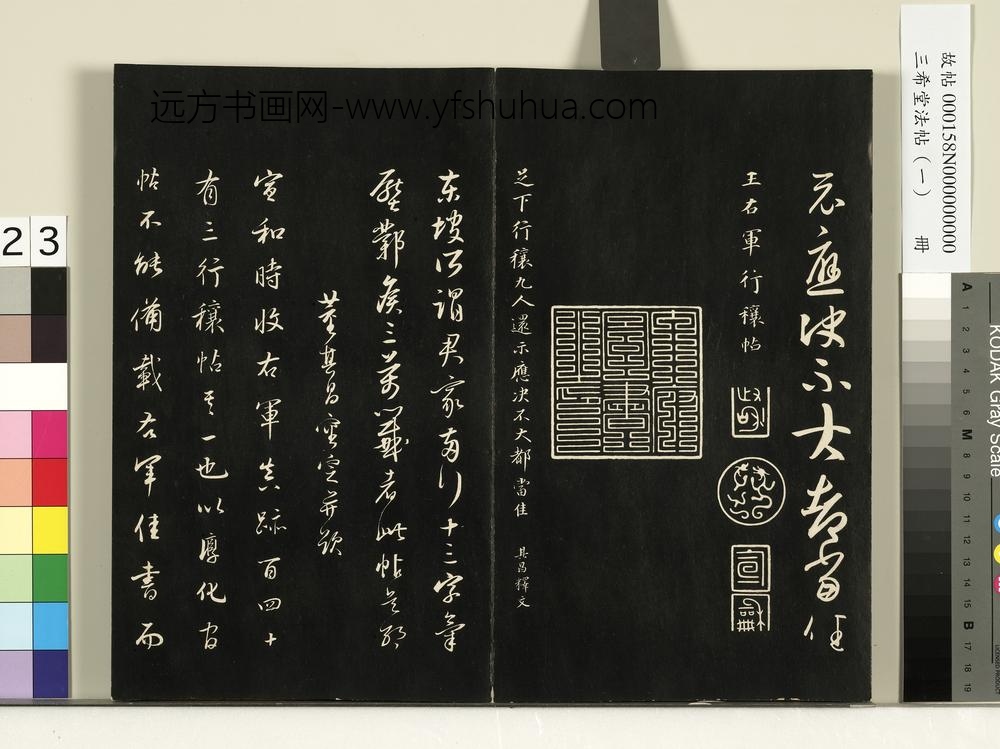 远方书画网-www.yfshuhua.com
故帖 000158N000000000
三希堂法帖（一） 冊
示應决不大都當佳
王右軍行穰帖
政和
宣
龢
足下行穰九人還示應决不大都當佳 其昌釋文
東坡所謂君家兩行十三字氣
壓鄴侯三萬籤者此帖是耶
董其昌審定并題
宣和時收右軍真跡百四十
有三行穰帖其一也以淳化官
帖不能備載右軍佳書而
23
KODAK Gray Scale
A 1 2 3 4 5 6 M 8 9 10 11 12 13 14 15 B 17 18 19